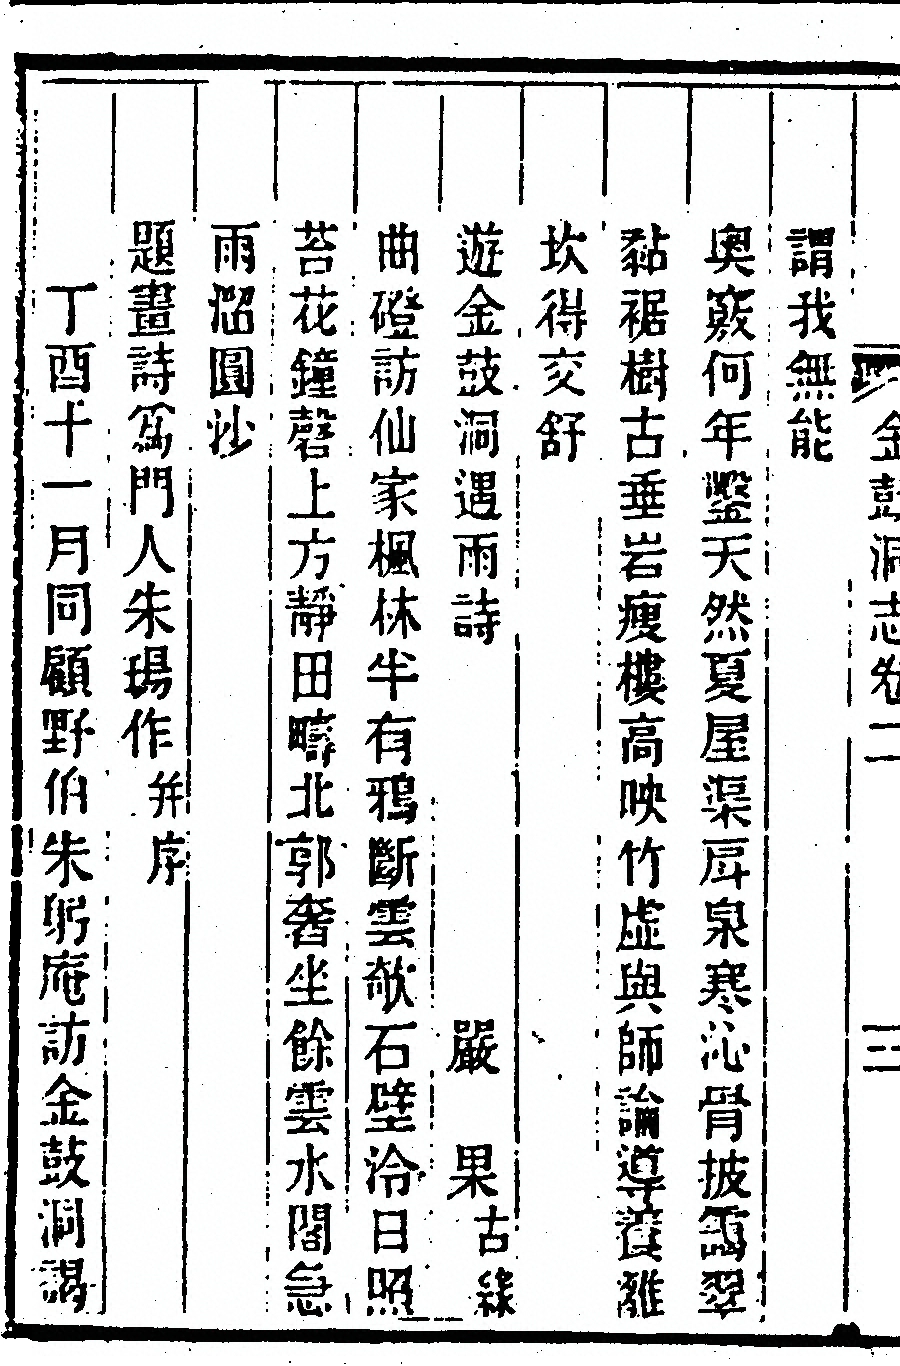 金鼓洞志卷二
三
謂我無能
奧竅何年鑿天然夏屋渠厈泉寒沁骨披靄翠
黏裾樹古垂岩瘦樓高映竹虛與師論導養離
坎得交舒
遊金鼓洞遇雨詩 嚴 果古緣
曲磴訪仙家楓林半有鴉斷雲欹石壁泠日照
苔花鐘磬上方靜田疇北郭奢坐餘雲水閣急
雨溜圓沙
題畫詩 門人朱瑒作并序
丁酉十一月同顧野伯朱躬庵訪金鼓洞謁